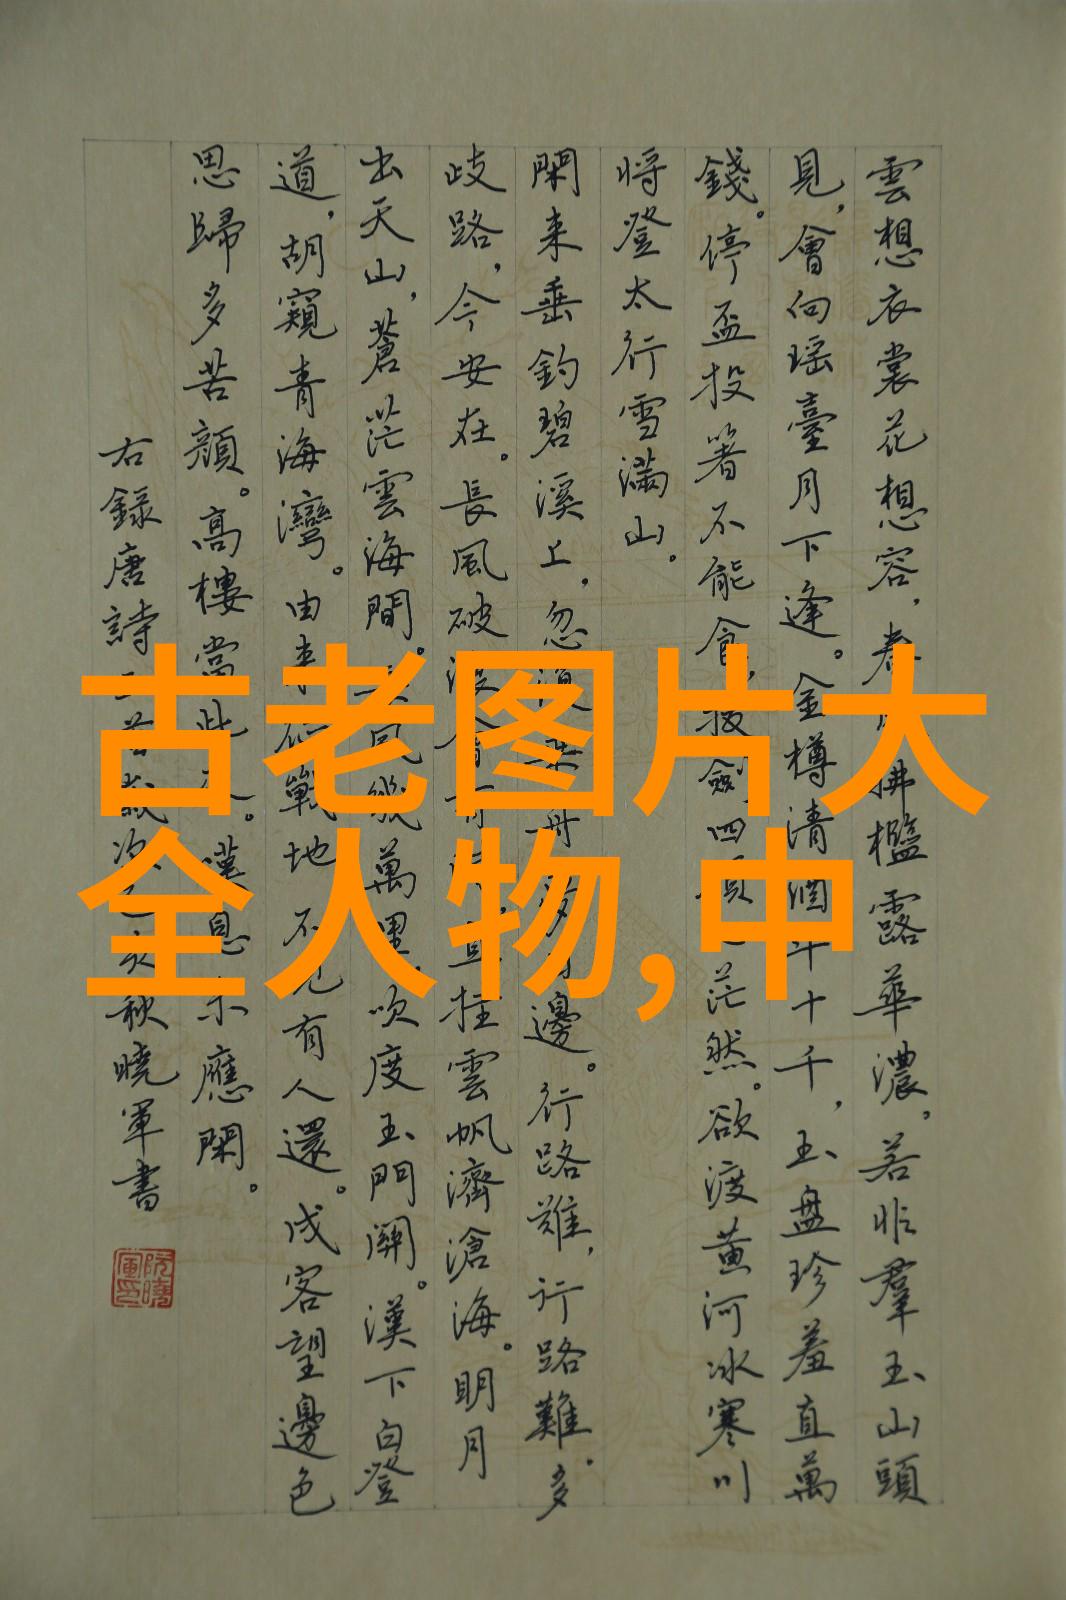 雲想衣裳花想容，春拂檻露華濃。若非羣玉山頭
見，會向瑶臺月下逢。金樽清酒十千，玉盤珍羞直萬
錢。停盃投箸不能食，拔劍四茫然。欲渡黄河冰寒川
将登太行雪滿山。
閑来垂釣碧溪上，忽邊。行路難，行路難。多
歧路，今安在。長風破挂雲帆濟滄海。明月
出天山，蒼茫雲海間。萬里，吹度玉門關。漢下白登
道，胡窺青海灣。由来戰地，不見有人還。戍客望邊色
思歸多苦顔。高樓當此。嘆息未應閑。
右録唐詩秋曉軍書
阮曉軍印
古老图片大
全人物,中